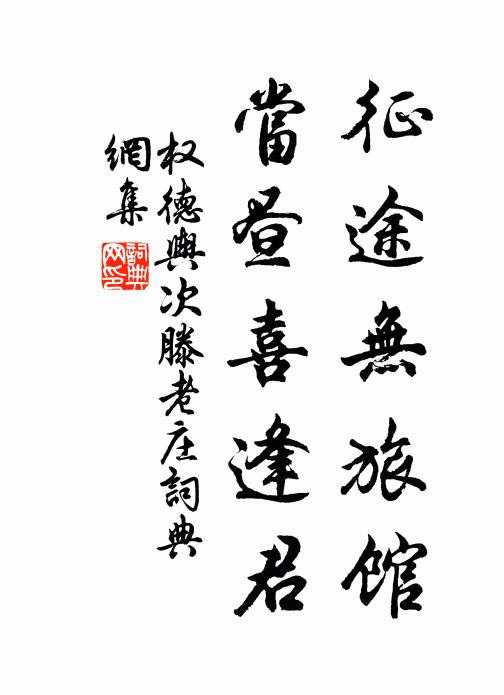 征途無旅館
當昼喜逢君
权德輿次滕老庄詞典
網集
詞典网印